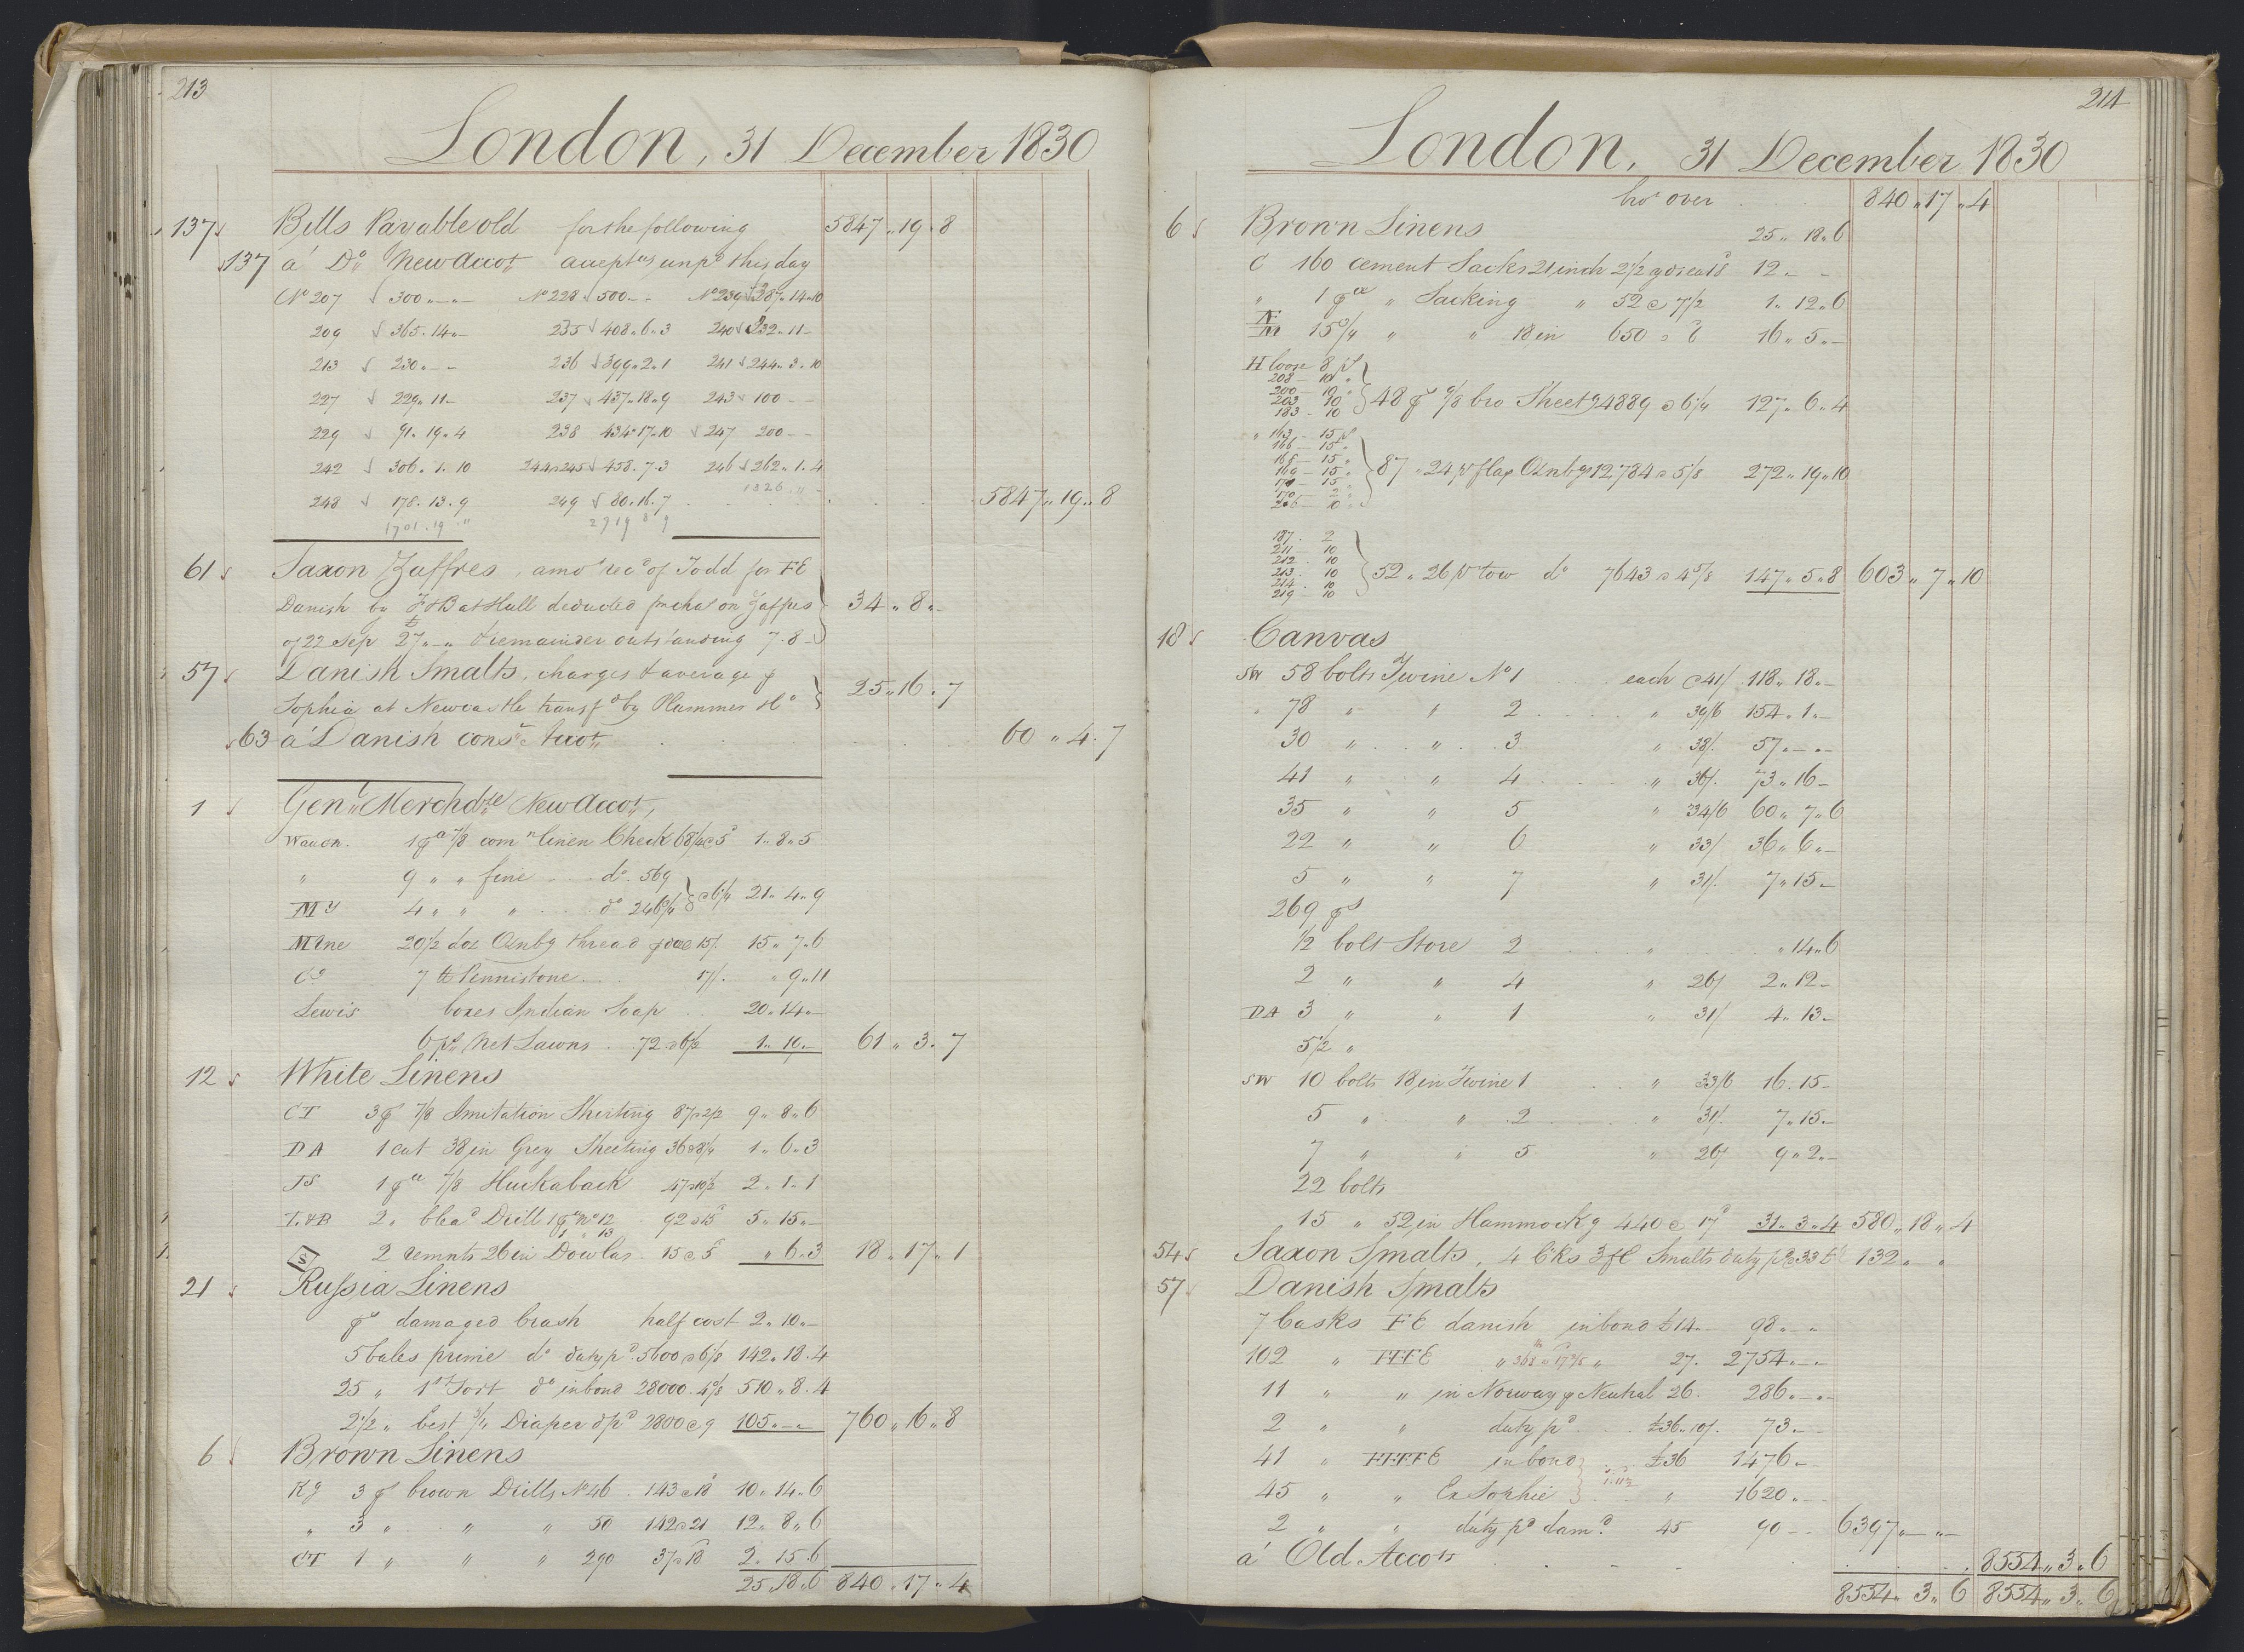 213
London, 31 December 1830
137 Bills Payable old for the following 5847 „ 19 „ 8
137 á Do New Accot accept.ces unp.d this day
No 207 300 „ – „ – No 228 500 – – No 239 287 „ 14 „ 10
209 365 . 14 „ – 235 408 „ 6 „ 3 240 232 „ 11 –
213 230 „ – – 236 399 „ 2 „ 1 241 244 „ 3 „ 10
227 229 „ 11 – 237 437 „ 18 „ 9 243 100 – –
229 91 „ 19 „ 4 238 434 „ 17 „ 10 247 200 – –
242 306 „ 1 „ 10 244 a 245 458 . 7 . 3 246 262 „ 1 . 4
1326 „ „ –
248 178 . 13 . 9 249 80 . 16 . 7 5847 „ 19 „ 8
1701 . 19 . " 2719 8 9
61 Saxon Zaffres, amo.t rec.d of Todd for FE
Danish by T&B at Hull deducted on Zaffres 34 „ 8 „ –
of 22 Sep £ 27 „ – „ & remainder outstanding 7 . 8 –
57 Danish Smalts, charges & average p 25 „ 16 . 7
Sophia at Newcastle transf.d by Plummer & Co
63 á Danish cons.t Accot 60 „ 4 . 7
1 Genl Merchdse New Accot,
1 pce 7/8 comn linen Check 68 1/4 @ 5d 1 „ 8 „ 5
" 9 „ „ fine do 569
MY 4 „ „ „ do 246 3/4 @ 6 1/4 21 „ 4 „ 9
20 1/2 doz Oznbg thread p doz @ 15/. 15 „ 7 „ 6
Co 7 lb Pennistone 17/. „ 9 „ 11
Lewis boxes Indian Soap 20 „ 14 „ –
6 ps Net Lawns 72 @ 6 1/2 1 „ 19 „ – 61 „ 3 „ 7
12 White Linens
CT 3 ps 7/8 Imitation Shirting 87 @ 2/2 9 „ 8 „ 6
DA 1 cut 38 in Grey Sheeting 36 @ 8 3/4 1 „ 6 „ 3
JS 1 pce 7/8 Huckaback 47 @ 10 1/2 2 „ 1 „ 1
T&B 2 „ blead Drill 1 p No 12 92 @ 15d 5 „ 15 „ –
1 „ 13
S 2 remnts 26 in Dowlas 15 @ 5 „ 6 „ 3 18 „ 17 „ 1
21 Russia Linens
ps damaged Crash half cost 2 „ 10 „ –
5 bales prime do duty pd 5600 @ 6 1/8 142 „ 18 . 4
25 „ 1st Sort do in bond 28000 . 4 3/8 510 „ 8 . 4
2 1/2 „ best 3/4 Diaper d/pd 2800 @ 9 105 „ – „ – 760 „ 16 „ 8
6 Brown Linens
RJ 3 ps brown Drills No 46 143 @ 18 10 „ 14 „ 6
„ 3 „ „ „ 50 142 @ 21 12 „ 8 „ 6
CT 1 „ „ „ 290 37 @ 18 2 „ 15 „ 6
25 „ 18 „ 6 840 „ 17 „ 4
214
London, 31 December 1830
bro over 840 „ 17 „ 4
6 Brown Linens 25 „ 18 „ 6
C 160 cement Sacks 21 inch 2 1/2 yds ea 12 „ – –
„ 1 pce „ Sacking „ 52 @ 7 1/2 1 „ 12 „ 6
15 3/4 „ „ 18 in 650 @ 6 16 „ 5 „ –
H loose 8 ps
208 – 10 „
200 – 10 „
203 – 10 48 ps 9/8 bro Sheetg 4889 @ 6 1/4 127 „ 6 „ 4
183 – 10
„ 163 – 15 ps
166 – 15 „
168 – 15 „
169 – 15 „ 87 „ 24 in flax Oznbgs 12734 @ 5 1/8 272 „ 19 „ 10
171 – 15 „
170 – 2 „
206 – 10 „
187 . 2
211 – 10
212 . 10
213 . 10 52 „ 26 in tow do 7643 @ 4 5/8 147 „ 5 „ 8 603 „ 7 „ 10
214 . 10
219 . 10
18 Canvas
SW 58 bolts Twine No 1 each @ 41/ 118 „ 18 „ –
„ 78 „ „ 2 „ 39/6 154 „ 1 „ –
30 „ „ 3 „ 38/. 57 „ – „ –
41 „ „ 4 „ 36/. 73 „ 16 –
35 „ „ 5 „ 34/6 60 „ 7 „ 6
22 „ „ 6 „ 33/ 36 „ 6 „ –
5 „ „ 7 „ 31/. 7 „ 15 –
269 ps
1/2 bolt Store 2 „ „ 14 „ 6
2 „ „ 4 „ 26/ 2 „ 12 –
DA 3 „ „ 1 „ 31/ 4 „ 13 –
5 1/2 „
SW 10 bolts 18 in Twine 1 „ 33/6 16 . 15 –
5 „ „ 2 „ 31/. 7 „ 15 –
7 „ „ 5 „ 26/ 9 „ 2 „ –
22 bolts
15 „ 52 in Hammockg 440 @ 17d 31 „ 3 „ 4 580 „ 18 „ 4
54 Saxon Smalts, 4 Cks Smalts duty pd @ 33 £ 132 „ – „
57 Danish Smalts
7 Casks FE danish in bond £14 – 98 „ – „
102 „ FFFE „ 368 „ 27 . 2754 „ – „ –
11 „ „ in Norway p Neutral 26 . 286 „ – „ –
2 „ „ duty pd £36 „ 10/. 73 „ – –
41 „ FFFFE in bond £36 1476 „ –
45 „ „ Ex Sophie „ 1620 „ –
2 „ „ duty pd damd 45 90 – – 6397 „ – „ –
á Old Accots 8554 „ 3 „ 6
8554 „ 3 „ 6 8554 „ 3 „ 6